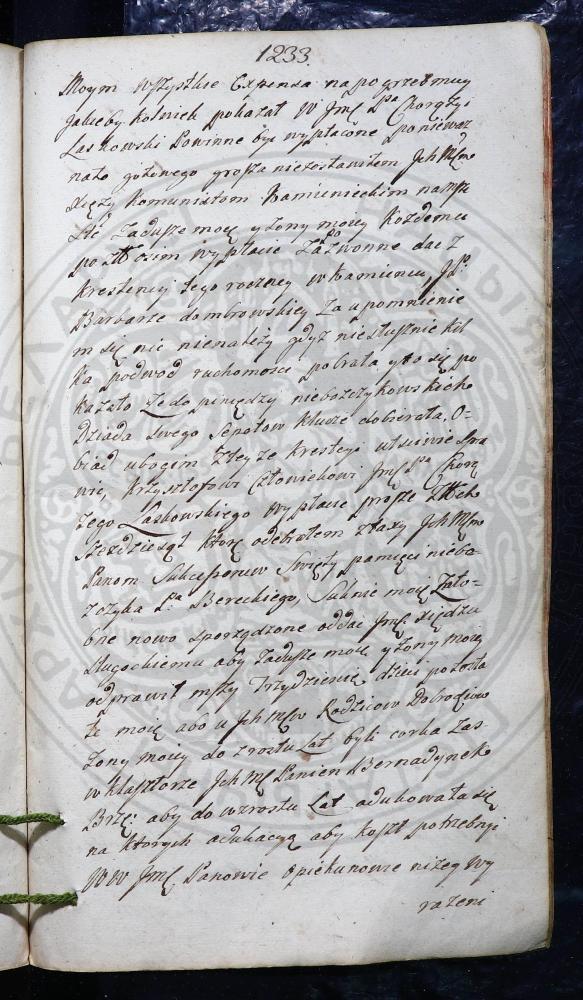 1233.
Moym wszystkie Expensa na pogrzeb muy
Jakieby kolwiek pokazał W Jmć Pa Chorąży
Laskowski Powinne być wypłacone ponieważ
nato gotowego grosza niezostawiłem Jch Mść
Xięży Komunistom Kamienieckim na mszę
Stę Zaduszę moię y żony moiey Kożdemu
po zł osim wypłacić Zadzwonne dać z
Krestencyi tego roczney w Kamieńcu, J P.
Barbarze dąmbrowskiey za upomnienie
m się nic nienależy gdyż niesłusznie kil
ka podwod ruchomosci pobrała y to się po
kazało że do pieniędzy nieboszczykowskich
Dziada swego Sepotow klucze dobierała. O=
biad ubogim Ztey ze krestęcyi utściwie spra
wić, Krzysztofowi Człowiekowi Jmć Pa Chorą
żego Laskowskiego wypłacić proszę zł
sześdziesąt ktorę odebrałem Ich Mść
Panom Sukcessorow Swięty pamięci niebo=
szczyka Pa Bereckiego, Suknie moię żało=
bne nowo sporządzone oddać Jmć Xiędzu
Długockiemu aby Zaduszę moię y żony moiey
odprawił mszy Trzydzieście, dzieci pozosta
łe moię abo u Ich Mściow Rodzicow Dobrodziow
żony moiey do zrostu Lat byli corka zas
w klasztorze Jch Mć Panien Bernadynek
Brzę: aby do wzrostu Lat adukowała się
na ktorych adukacyą aby koszt potrzebnyi
WW Jmć Panowie Opiekunowie niżey wy
rażeni